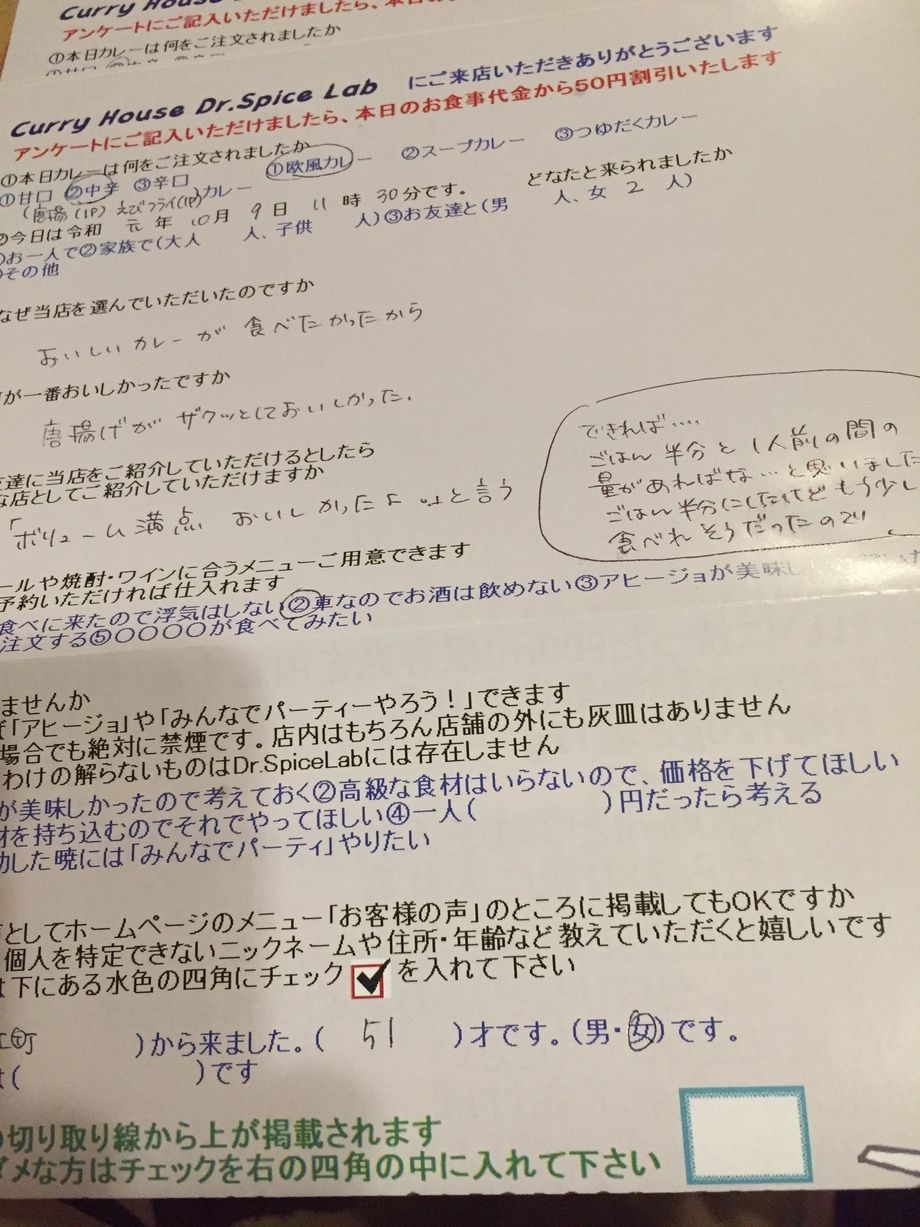 Curry House
アンケートにご記入いただけましたら、本日
①本日カレーは何をご注文されましたか
Curry House Dr.Spice Lab にご来店いただきありがとうございます
アンケートにご記入いただけましたら、本日のお食事代金から50円割引いたします
①本日カレーは何をご注文されましたか ①欧風カレー ②スープカレー ③つゆだくカレー
①甘口 ②中辛 ③辛口
(唐揚(1P) えびフライ(1P))カレー どなたと来られましたか
今日は令和 元年 10月 9日 11時 30分です。
お一人で②家族で(大人 人、子供 人)③お友達と(男 人、女 2 人)
その他
なぜ当店を選んでいただいたのですか
おいしいカレーが食べたかったから
が一番おいしかったですか
唐揚げがザクッとしておいしかった。
友達に当店をご紹介していただけるとしたら
な店としてご紹介していただけますか
「ボリューム満点 おいしかったよ」と言う
できれば....
ごはん半分と1人前の間の
量があればな...と思いました
ごはん半分にしたけどもう少し
食べれそうだったので
ールや焼酎・ワインに合うメニューご用意できます
予約いただければ仕入れます
食べに来たので浮気はしない②車なのでお酒は飲めない③アヒージョが美味し
注文する⑤〇〇〇〇が食べてみたい
ませんか
「アヒージョ」や「みんなでパーティーやろう!」できます
場合でも絶対に禁煙です。店内はもちろん店舗の外にも灰皿はありません
わけの解らないものはDr.SpiceLabには存在しません
が美味しかったので考えておく②高級な食材はいらないので、価格を下げてほしい
材を持ち込むのでそれでやってほしい④一人( )円だったら考える
功した暁には「みんなでパーティ」やりたい
としてホームページのメニュー「お客様の声」のところに掲載してもOKですか
個人を特定できないニックネームや住所・年齢など教えていただくと嬉しいです
は下にある水色の四角にチェック を入れて下さい
町 )から来ました。( 51 )才です。(男・女)です。
( )です
切り取り線から上が掲載されます
ダメな方はチェックを右の四角の中に入れて下さい